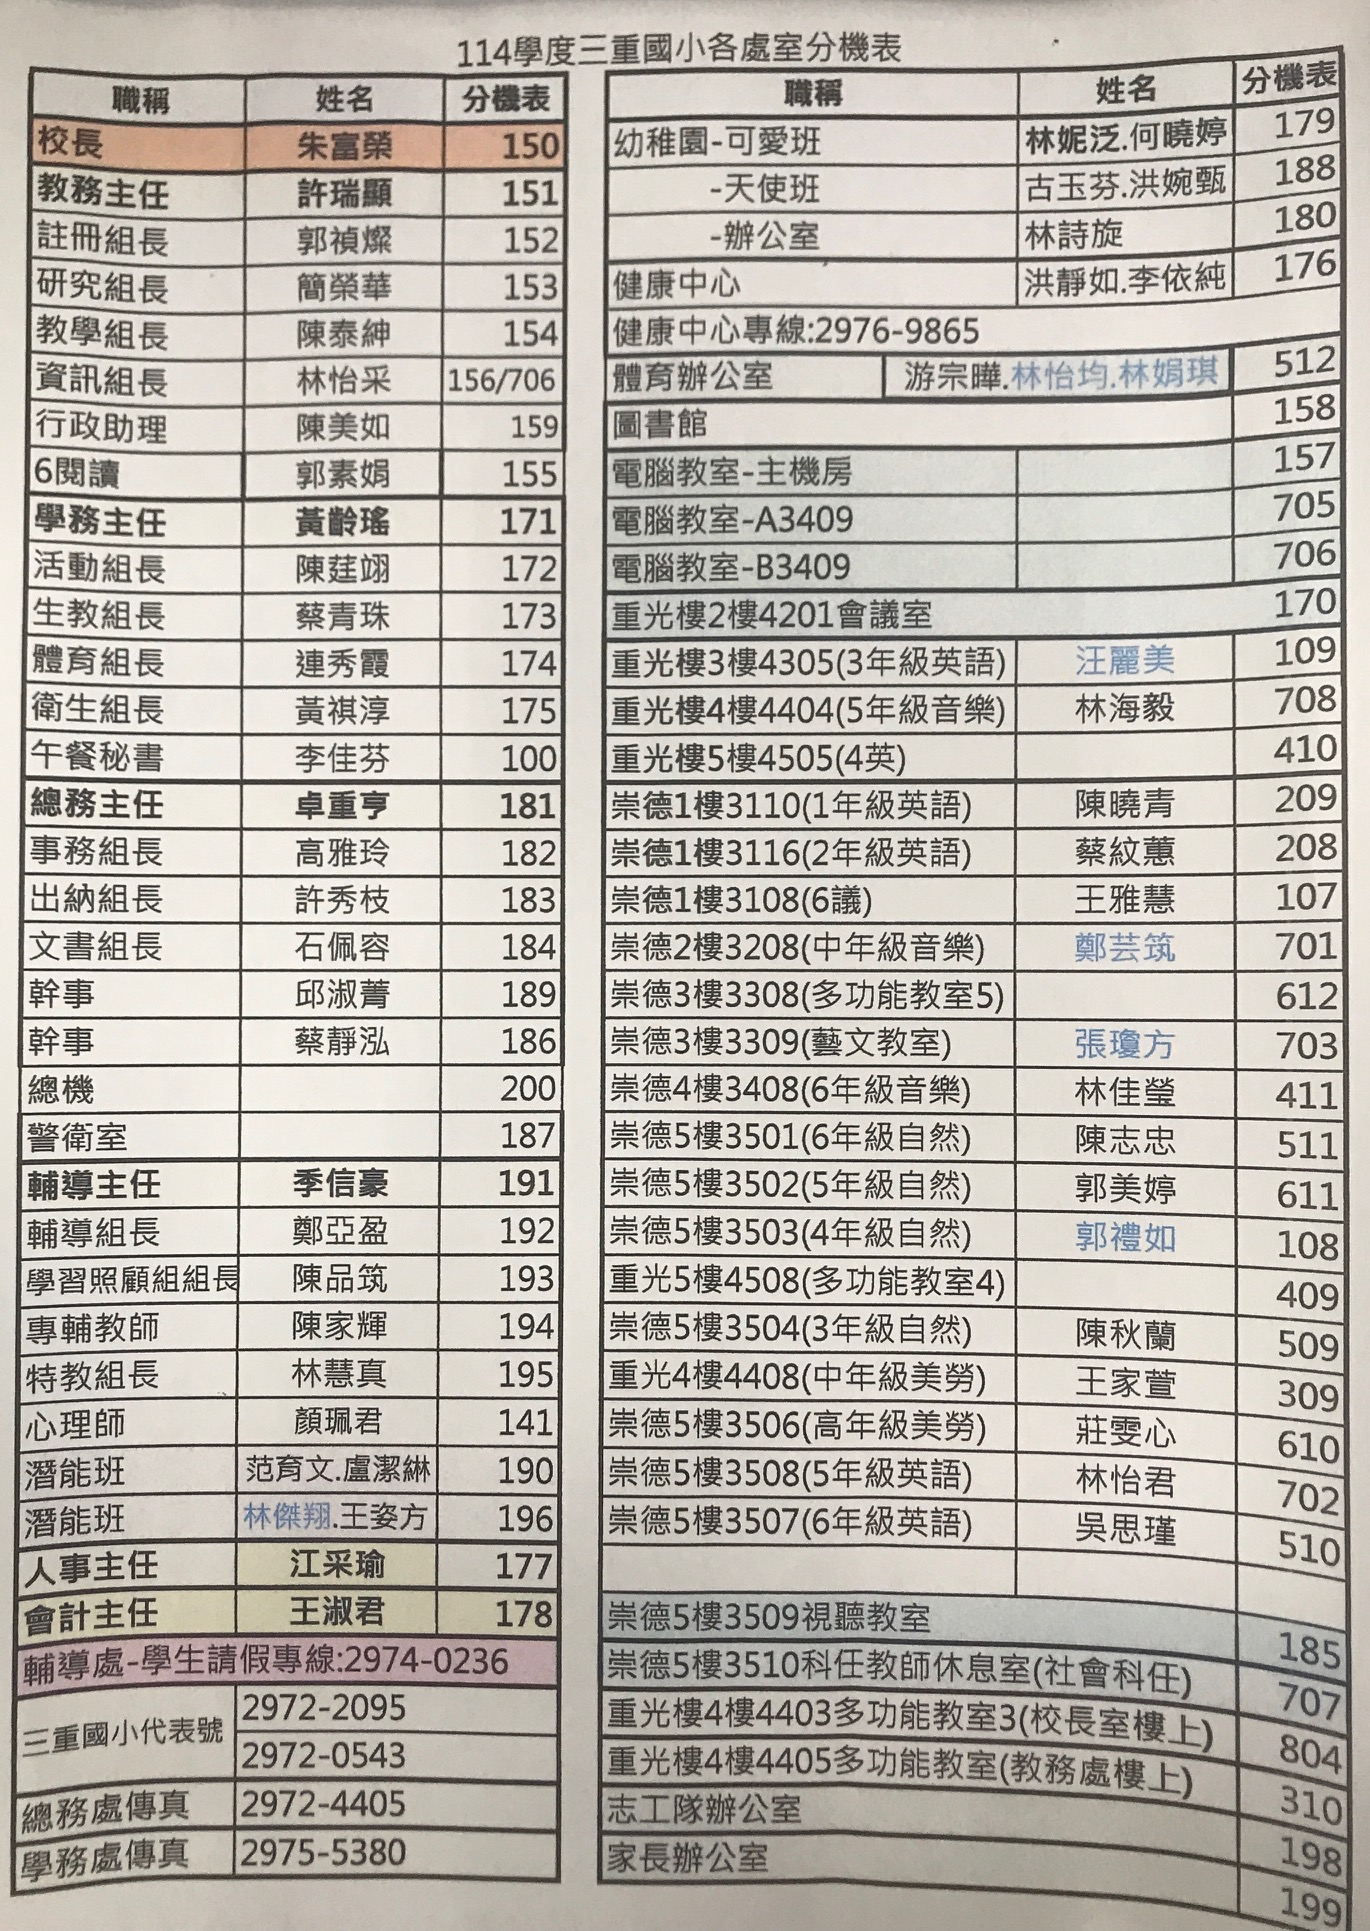 114學度三重國小各處室分機表
職稱 姓名 分機表
校長 朱富榮 150
教務主任 許瑞顯 151
註冊組長 郭禎燦 152
研究組長 簡榮華 153
教學組長 陳泰紳 154
資訊組長 林怡采 156/706
行政助理 陳美如 159
6閱讀 郭素娟 155
學務主任 黃齡瑤 171
活動組長 陳莛翊 172
生教組長 蔡青珠 173
體育組長 連秀霞 174
衛生組長 黃祺淳 175
午餐秘書 李佳芬 100
總務主任 卓重亨 181
事務組長 高雅玲 182
出納組長 許秀枝 183
文書組長 石佩容 184
幹事 邱淑菁 189
幹事 蔡靜泓 186
總機 200
警衛室 187
輔導主任 季信豪 191
輔導組長 鄭亞盈 192
學習照顧組組長 陳品筑 193
專輔教師 陳家輝 194
特教組長 林慧真 195
心理師 顏珮君 141
潛能班 范育文.盧潔綝 190
潛能班 林傑翔.王姿方 196
人事主任 江采瑜 177
會計主任 王淑君 178
輔導處-學生請假專線:2974-0236
三重國小代表號 2972-2095
2972-0543
總務處傳真 2972-4405
學務處傳真 2975-5380
職稱 姓名 分機表
幼稚園-可愛班 林妮泛.何曉婷 179
-天使班 古玉芬.洪婉甄 188
-辦公室 林詩旋 180
健康中心 洪靜如.李依純 176
健康中心專線:2976-9865
體育辦公室 游宗曄.林怡均.林娟琪 512
圖書館 158
電腦教室-主機房 157
電腦教室-A3409 705
電腦教室-B3409 706
重光樓2樓4201會議室 170
重光樓3樓4305(3年級英語) 汪麗美 109
重光樓4樓4404(5年級音樂) 林海毅 708
重光樓5樓4505(4英) 410
崇德1樓3110(1年級英語) 陳曉青 209
崇德1樓3116(2年級英語) 蔡紋蕙 208
崇德1樓3108(6議) 王雅慧 107
崇德2樓3208(中年級音樂) 鄭芸筑 701
崇德3樓3308(多功能教室5) 612
崇德3樓3309(藝文教室) 張瓊方 703
崇德4樓3408(6年級音樂) 林佳瑩 411
崇德5樓3501(6年級自然) 陳志忠 511
崇德5樓3502(5年級自然) 郭美婷 611
崇德5樓3503(4年級自然) 郭禮如 108
重光5樓4508(多功能教室4) 409
崇德5樓3504(3年級自然) 陳秋蘭 509
重光4樓4408(中年級美勞) 王家萱 309
崇德5樓3506(高年級美勞) 莊雯心 610
崇德5樓3508(5年級英語) 林怡君 702
崇德5樓3507(6年級英語) 吳思瑾 510
崇德5樓3509視聽教室 185
崇德5樓3510科任教師休息室(社會科任) 707
重光樓4樓4403多功能教室3(校長室樓上) 804
重光樓4樓4405多功能教室(教務處樓上) 310
志工隊辦公室 198
家長辦公室 199